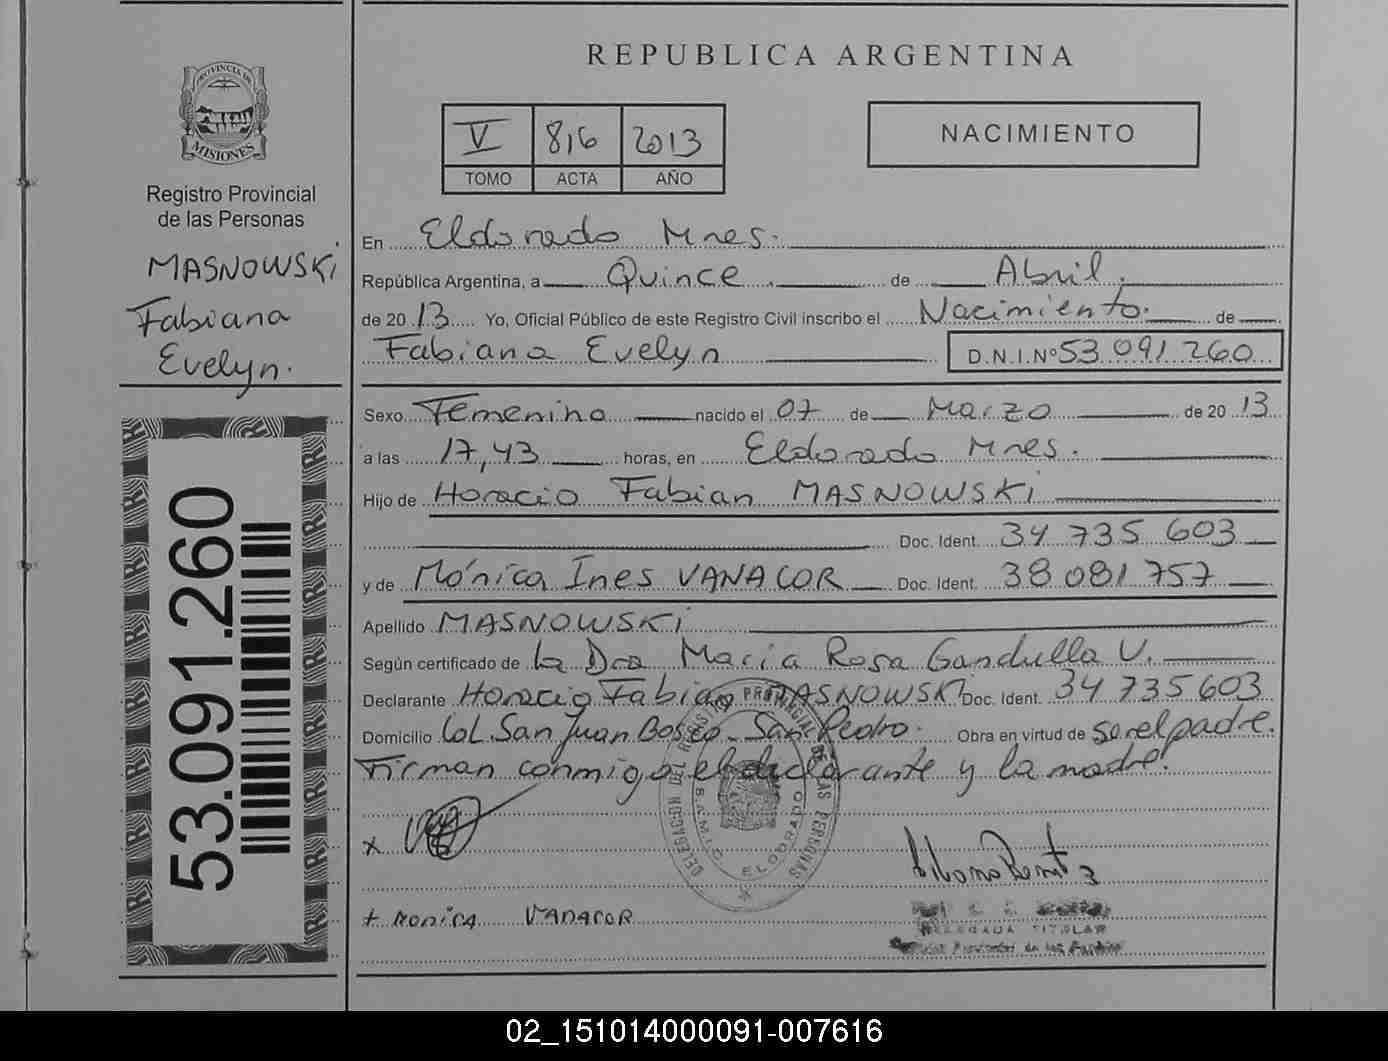 REPUBLICA ARGENTINA
PROVINCIA DE
MISIONES
Registro Provincial
de las Personas
MASNOWSKI
Fabiana
Evelyn.
53.091.260
V 816 2013
TOMO ACTA AÑO
NACIMIENTO
En Eldorado Mnes.
República Argentina, a Quince de Abril.
de 20 13 Yo, Oficial Público de este Registro Civil inscribo el Nacimiento. de
Fabiana Evelyn D.N.I.Nº 53 091 260
Sexo Femenino nacido el 07 de Marzo de 20 13
a las 17,43 horas, en Eldorado Mnes.
Hijo de Horacio Fabian MASNOWSKI
Doc. Ident. 34 735 603
y de Mónica Ines VANACOR Doc. Ident. 38 081 757
Apellido MASNOWSKI
Según certificado de la Dra Maria Rosa Gandulla V.
Declarante Horacio Fabian MASNOWSKI Doc. Ident. 34 735 603
Domicilio Col. San Juan Bosco - San Pedro. Obra en virtud de ser el padre.
Firman conmigo el declarante y la madre.
DELEGACION DEL REGISTRO PROVINCIAL DE LAS PERSONAS
ELDORADO
x
+ MONICA VANACOR
DELEGADA TITULAR
02_151014000091-007616